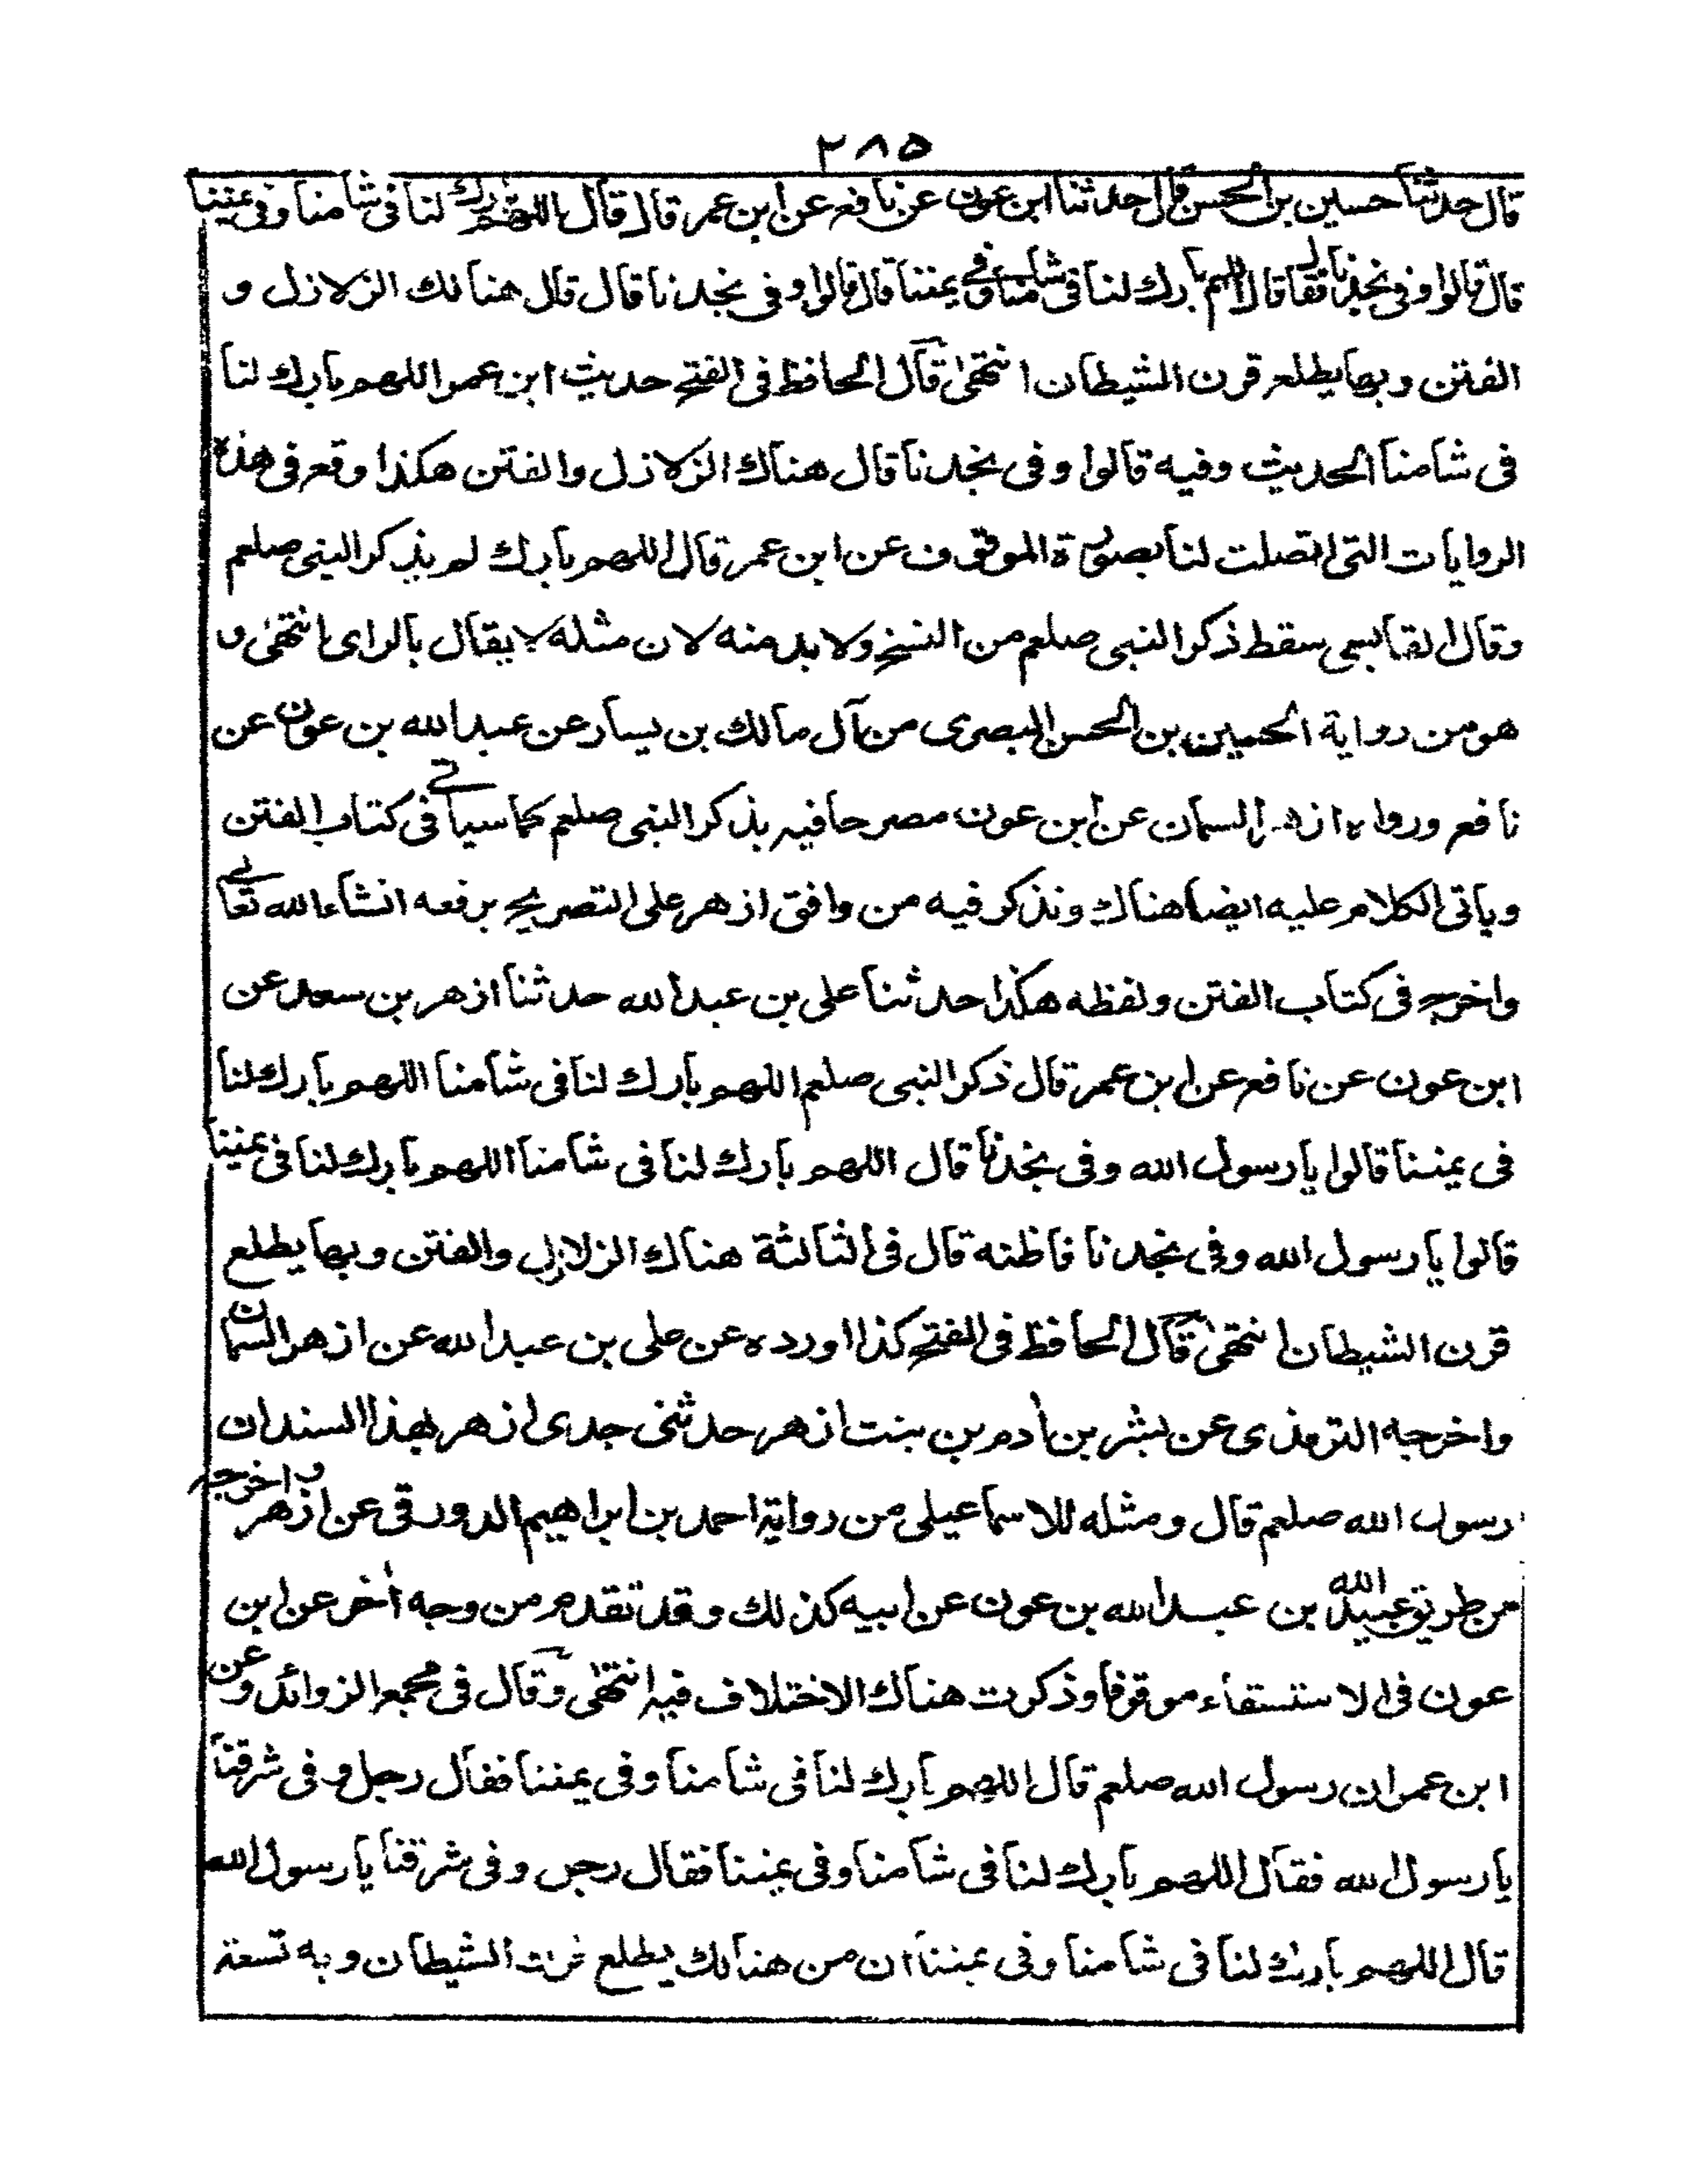 ٢٨٥
قال حدثنا حسين بن الحسن قال حدثنا ابن عون عن نافع عن ابن عمر قال قال اللهم بارك لنا فى شامنا وفى يمننا
قال قالوا وفى نجدنا فقال قال اللهم بارك لنا فى شامنا وفى يمننا قال قالوا وفى نجدنا قال قال هنالك الزلازل و
الفتن وبها يطلع قرن الشيطان انتهى قال الحافظ فى الفتح حديث ابن عمر اللهم بارك لنا
فى شامنا الحديث وفيه قالوا وفى نجدنا قال هناك الزلازل والفتن هكذا وقع فى هذه
الروايات التى اتصلت لنا بصورة الموقوف عن ابن عمر قال اللهم بارك لم يذكر النبى صلعم
وقال القابسى سقط ذكر النبى صلعم من النسخ ولا بد منه لان مثله لا يقال بالراى انتهى و
هو من رواية الحسين بن الحسن البصرى من آل مالك بن يسار عن عبد الله بن عون عن
نافع ورواه ازهر السمان عن ابن عون مصرحا فيه بذكر النبى صلعم كما سياتى فى كتاب الفتن
وياتى الكلام عليه ايضا هناك ونذكر فيه من وافق ازهر على التصريح برفعه انشاء الله تعالى
واخرجه فى كتاب الفتن ولفظه هكذا حدثنا على بن عبد الله حدثنا ازهر بن سعد عن
ابن عون عن نافع عن ابن عمر قال ذكر النبى صلعم اللهم بارك لنا فى شامنا اللهم بارك لنا
فى يمننا قالوا يا رسول الله وفى نجدنا قال اللهم بارك لنا فى شامنا اللهم بارك لنا فى يمننا
قالوا يا رسول الله وفى نجدنا فاظنه قال فى الثالثة هناك الزلازل والفتن وبها يطلع
قرن الشيطان انتهى قال الحافظ فى الفتح كذا اورده عن على بن عبد الله عن ازهر السمان
واخرجه الترمذى عن بشر بن آدم بن بنت ازهر حدثنى جدى ازهر بهذا السند ان
رسول الله صلعم قال ومثله للاسماعيلى من رواية احمد بن ابراهيم الدورقى عن ازهر واخرجه
من طريق عبيد الله بن عبد الله بن عون عن ابيه كذلك وقد تقدم من وجه آخر عن ابن
عون فى الاستسقاء موقوفا وذكرت هناك الاختلاف فيه انتهى وقال فى مجمع الزوائد وعن
ابن عمر ان رسول الله صلعم قال اللهم بارك لنا فى شامنا وفى يمننا فقال رجل وفى شرقنا
يا رسول الله فقال اللهم بارك لنا فى شامنا وفى يمننا فقال رجل وفى شرقنا يا رسول الله
قال اللهم بارك لنا فى شامنا وفى يمننا ان من هنالك يطلع قرن الشيطان وبه تسعة